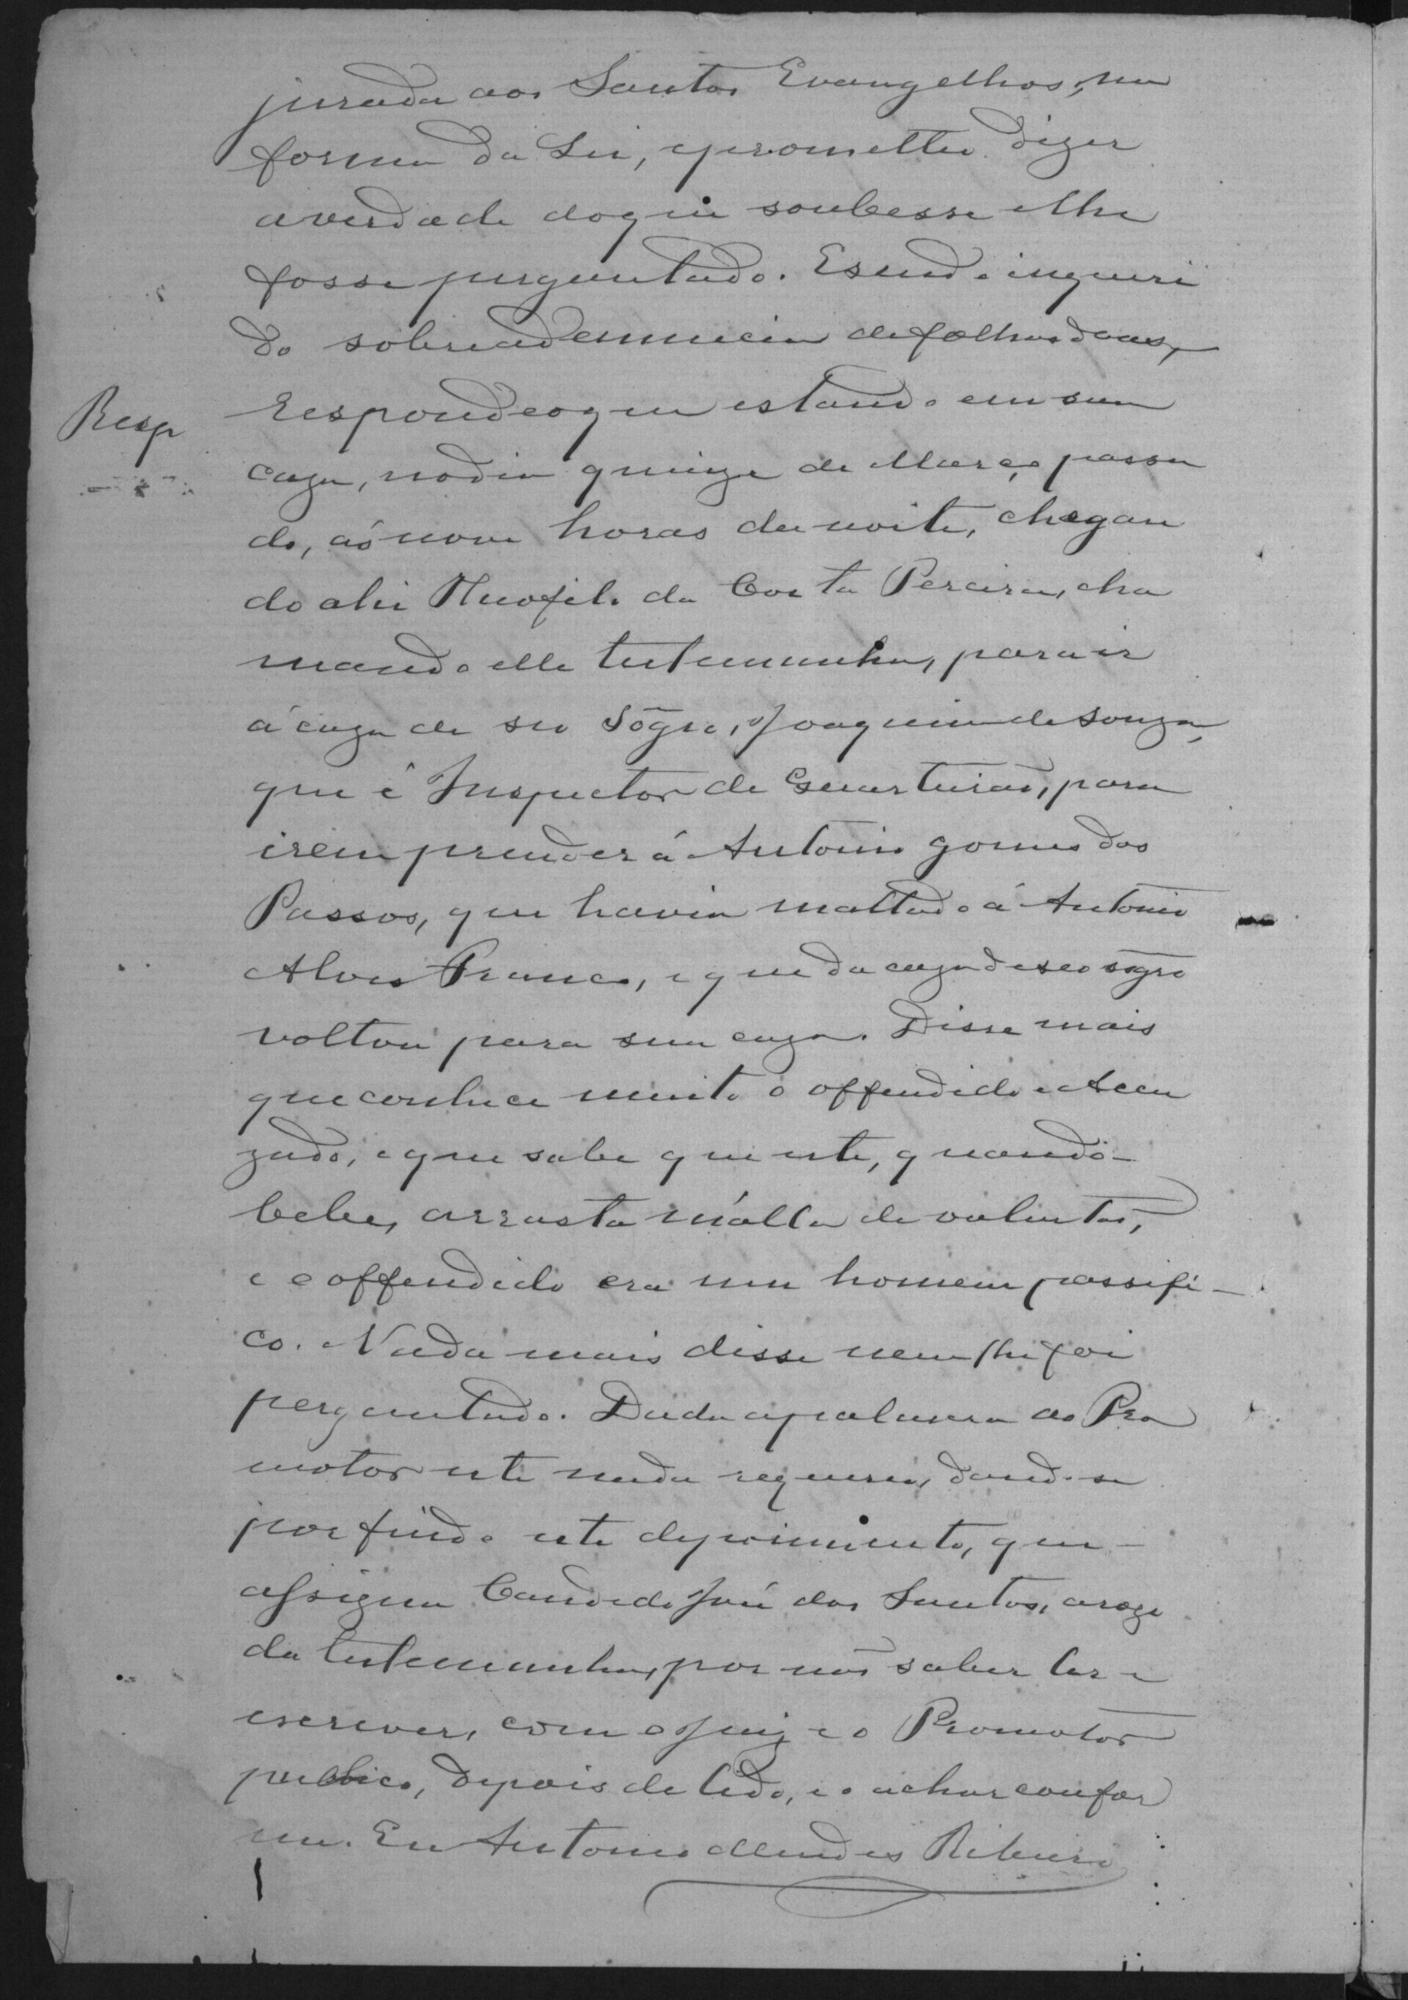 jurada aos Santos Evangelhos, na
forma da Lei, eprometteo dizer
averdade doque soubesse elhe
fosse perguntado. Esendo inqueri
do sobreadenuncia defolhas duas,
Resp
Respondeoque estando em sua
caza, nodia quinze de Março passa
do, ás nove horas danoite, chegan
do ahi Theofilo da Costa Pereira, cha
mando elle testemunha, para ir
á caza de seo Sôgro, Joaquim de Souza,
que é Inspector de Quarteirão, para
irem prender á Antonio gomes dos
Passos, que havia mattado á Antonio
Alves Franco, e que da caza deseo sogro
voltou para sua caza. Disse mais
queconhece muito o offendido e Accu
zado, eque sabe que este, quando
bebe, arrasta malla de valentão,
e o offendido era um homem passifi-
co. Nada mais disse nem lhe foi
perguntado. Dada apalavra ao Pro
motor este nada requereo, dando-se
por findo este depoimento, que
assigna Candido José dos Santos, arogo
da testemunha, por não saber ler e
escrever, com o Juiz e o Promotor
publico, depois de lido, e o achar confor
me. Eu Antonio Mendes Ribeiro